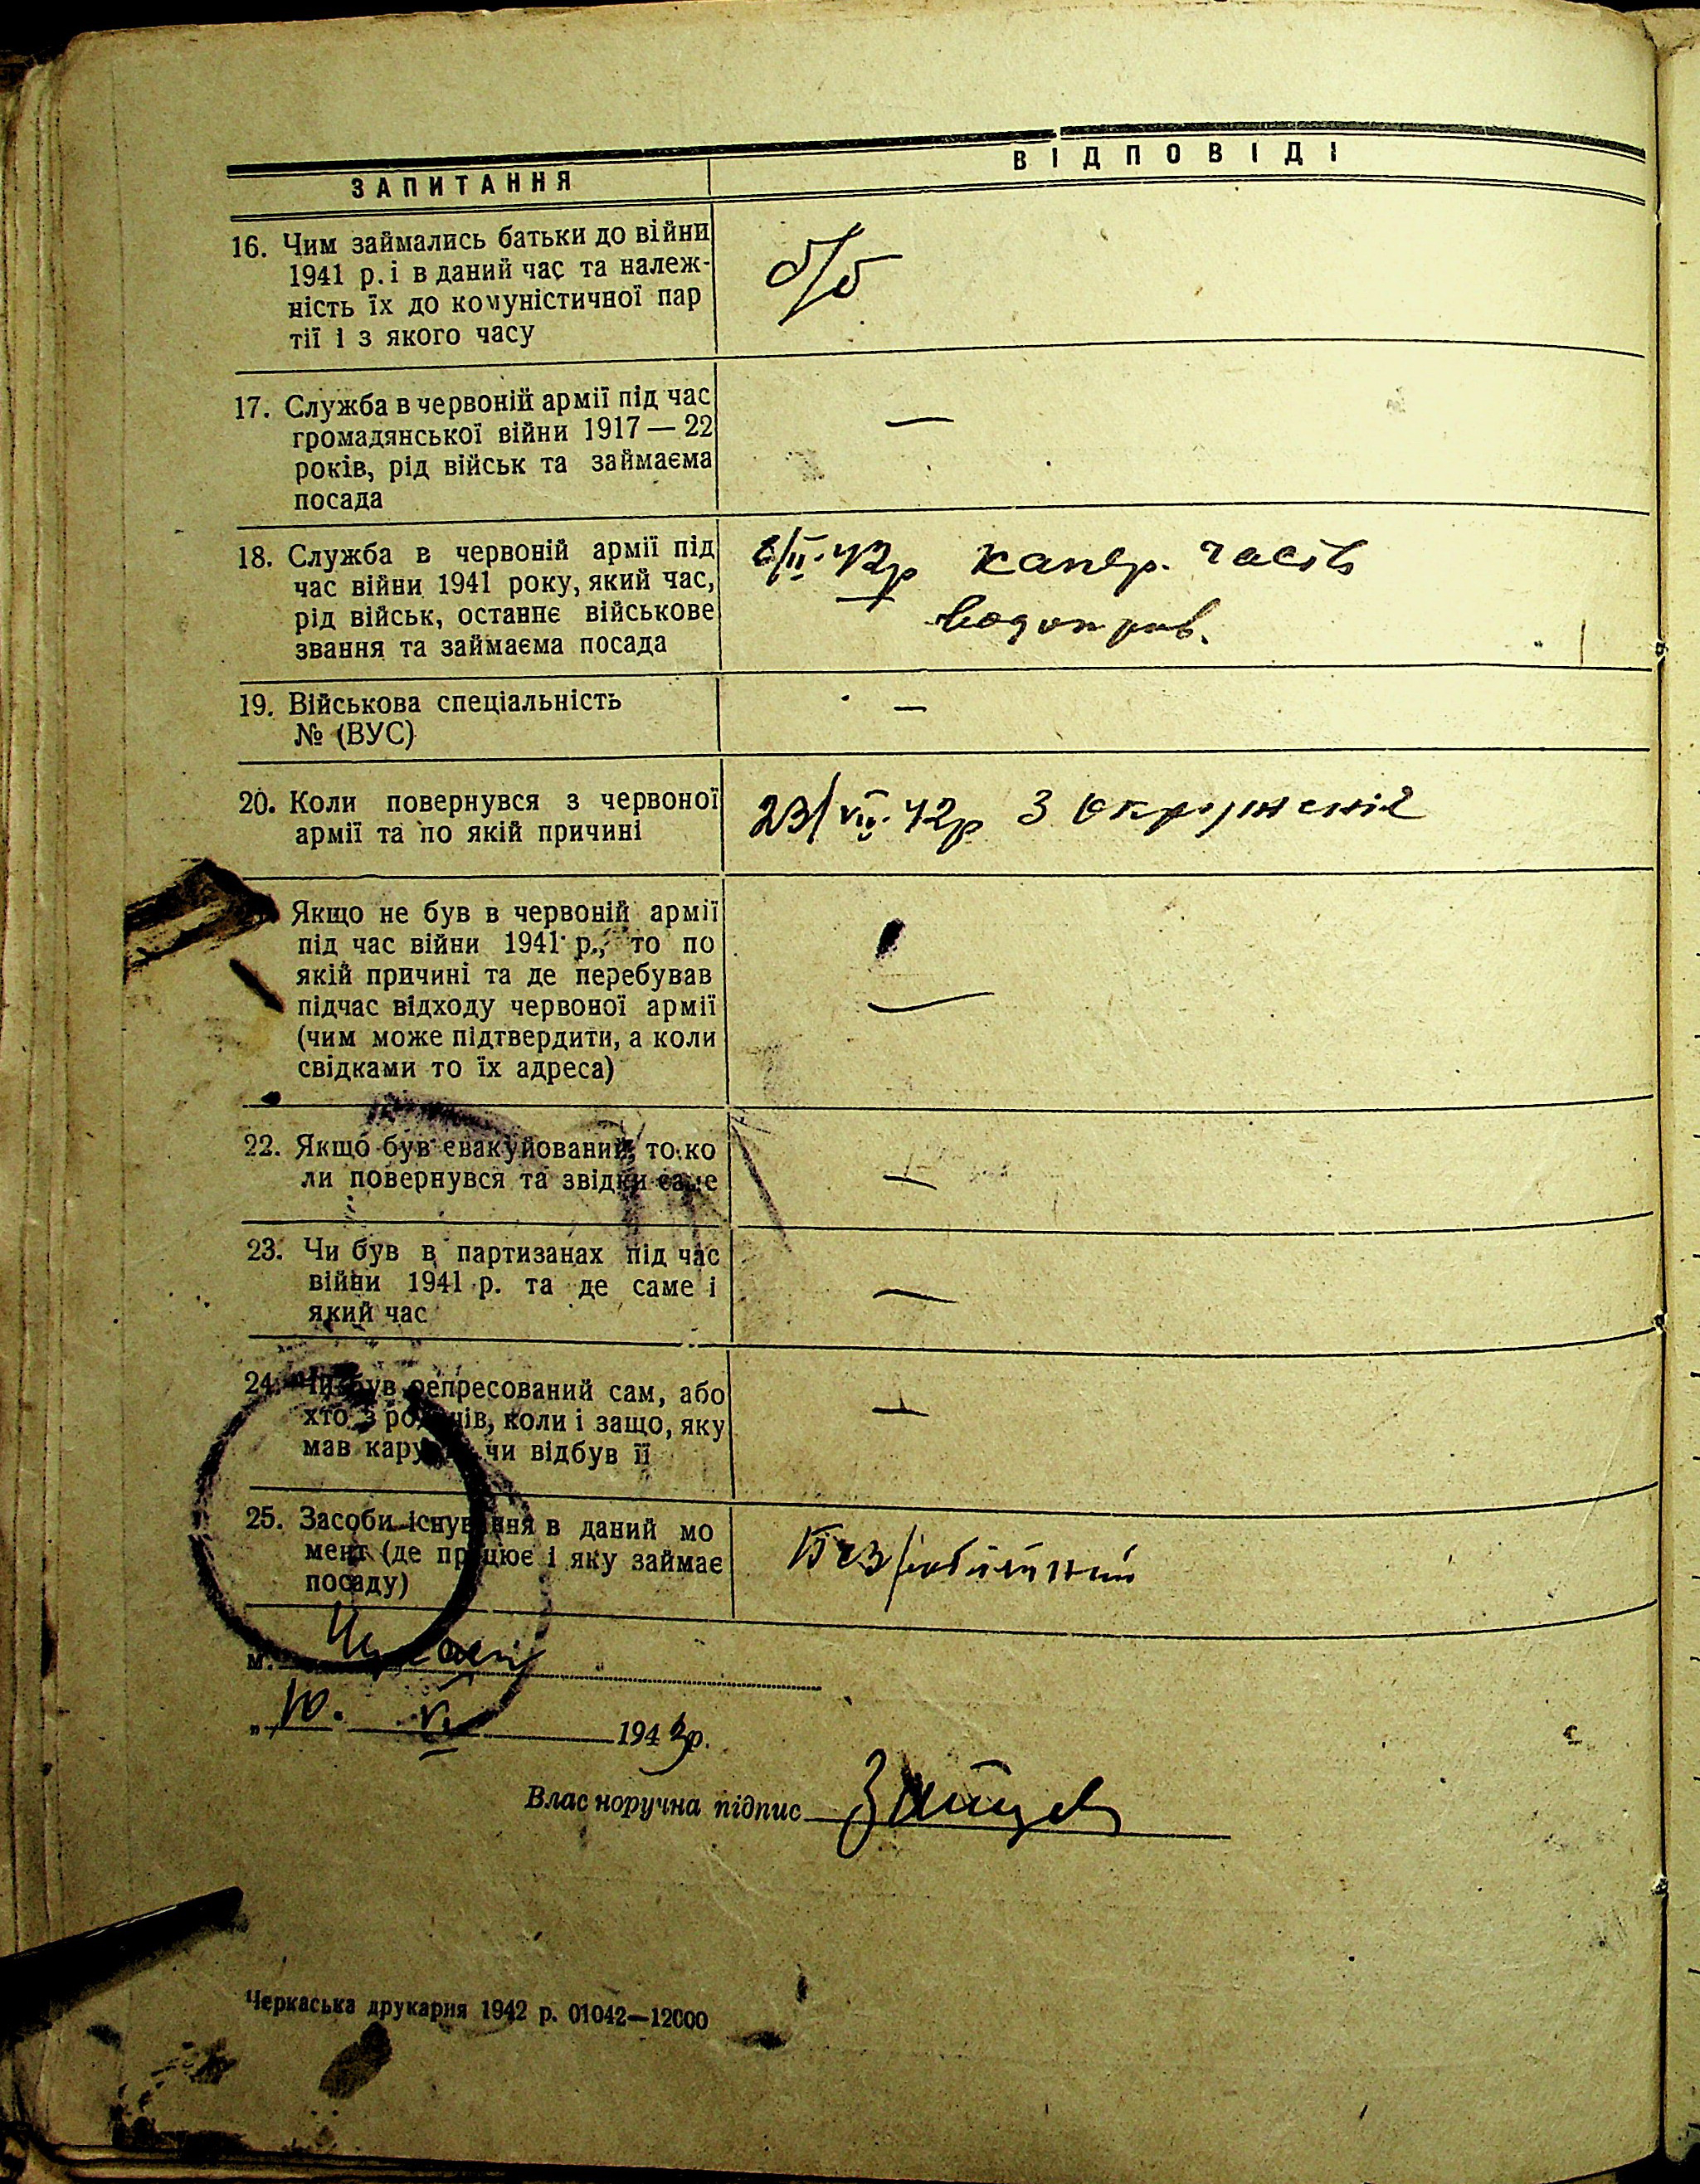 ЗАПИТАННЯ
ВІДПОВІДІ
16. Чим займались батьки до війни
1941 р. і в даний час та належ-
ність їх до комуністичної пар
тії і з якого часу
б/б
17. Служба в червоній армії під час
громадянської війни 1917 — 22
років, рід військ та займаєма
посада
—
18. Служба в червоній армії під
час війни 1941 року, який час,
рід військ, останнє військове
звання та займаєма посада
42р часть
19. Військова спеціальність
№ (ВУС)
—
20. Коли повернувся з червоної
армії та по якій причині
23/VII. 42р З окруженія
Якщо не був в червоній армії
під час війни 1941 р., то по
якій причині та де перебував
підчас відходу червоної армії
(чим може підтвердити, а коли
свідками то їх адреса)
—
22. Якщо був евакуйований, то ко
ли повернувся та звідки саме
—
23. Чи був в партизанах під час
війни 1941 р. та де саме і
який час
—
24. Чи був репресований сам, або
хто з родичів, коли і защо, яку
мав кару чи відбув її
—
25. Засоби існування в даний мо
мент (де працює і яку займає
посаду)
Без/робітний
м. Черкаси
„ 10. VI 1943р.
Власноручна підпис Зайцев
Черкаська друкарня 1942 р. 01042—12000